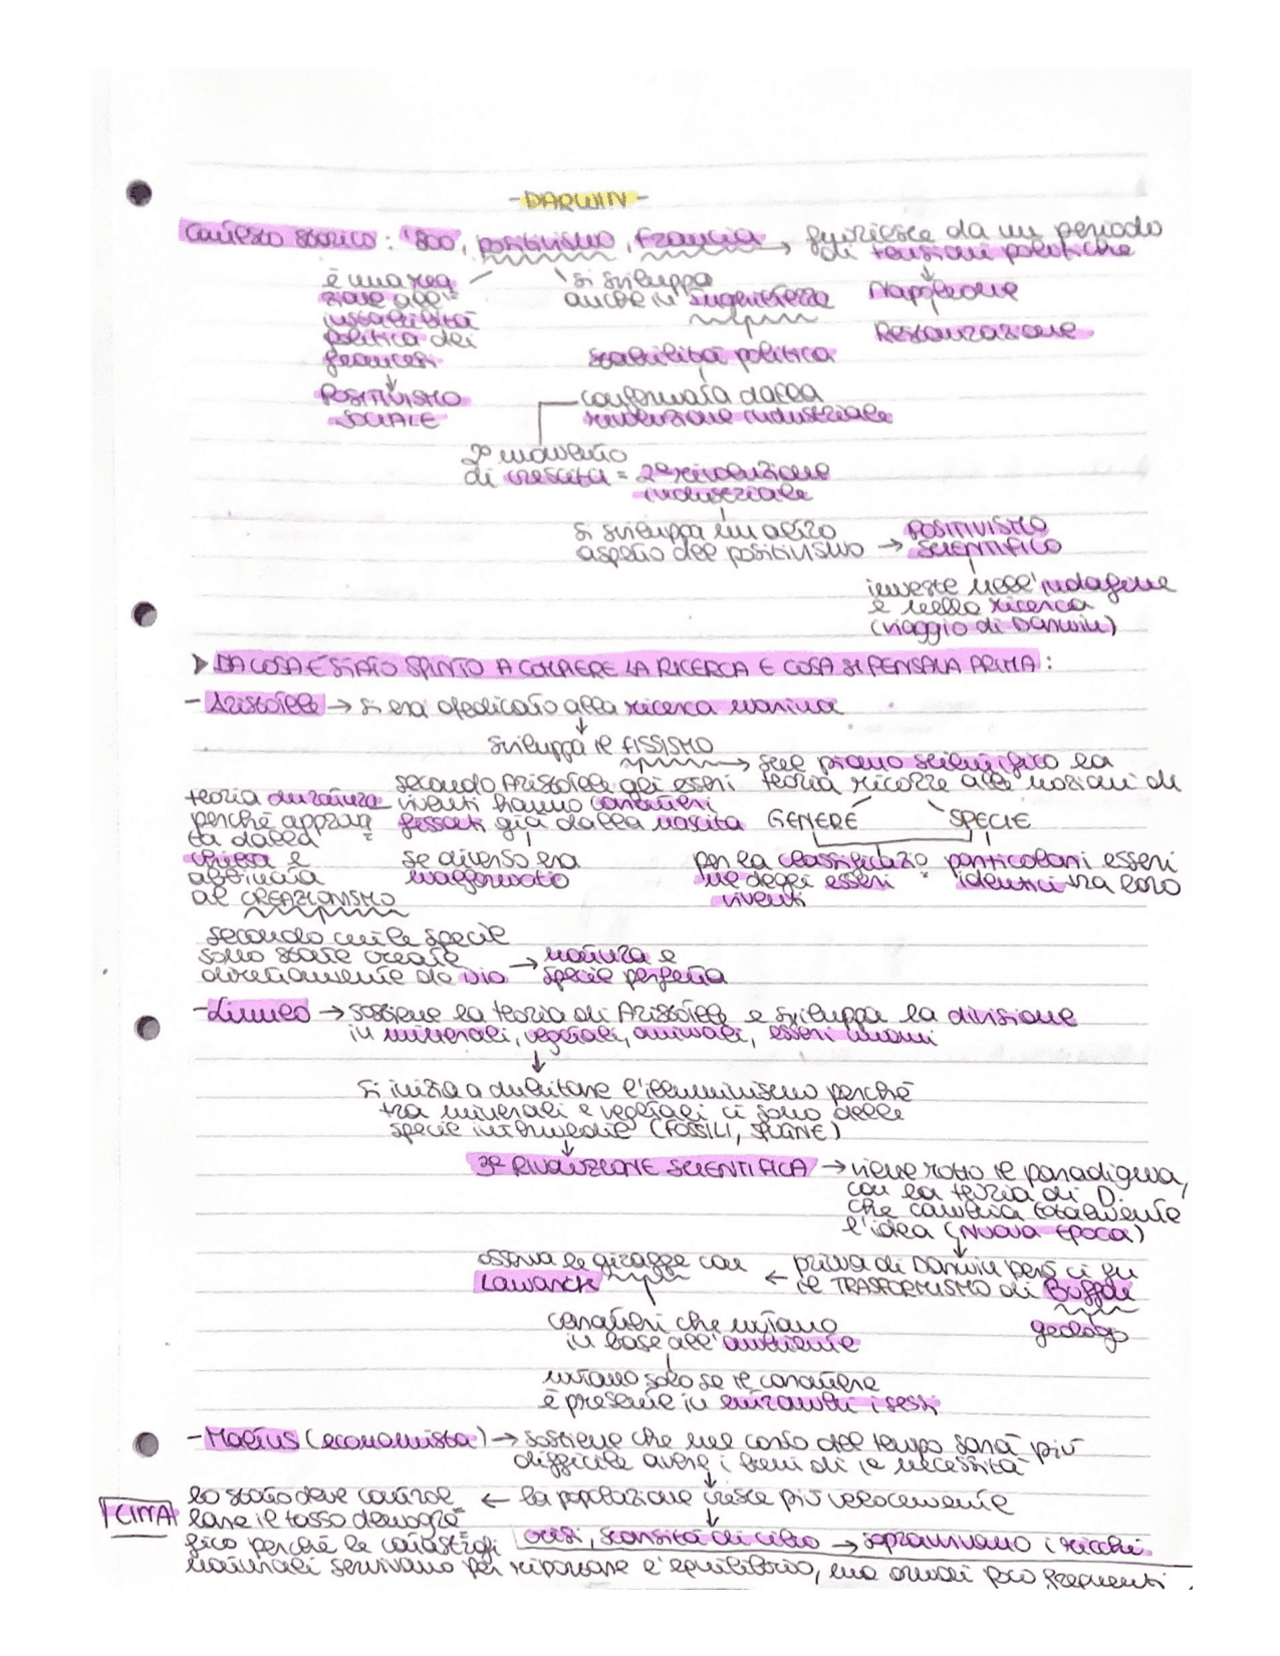 - DARWIN -
Contesto storico: '800, positivismo, Francia → fuoriesce da un periodo
di tensioni politiche
è una rea
zione all'
instabilità
politica dei
francesi
↓
POSITIVISMO
SOCIALE
si sviluppa
anche in Inghilterra
stabilità politica
confermata dalla
rivoluzione industriale
↓
Napoleone
Restaurazione
2° momento
di crescita = 2° rivoluzione
industriale
si sviluppa un altro
aspetto del positivismo → POSITIVISMO
SCIENTIFICO
investe nell'indagine
e nella ricerca
(viaggio di Darwin)
DA COSA È STATO SPINTO A COMPIERE LA RICERCA E COSA SI PENSAVA PRIMA:
- Aristotele → si era dedicato alla ricerca marina
↓
sviluppa il FISSISMO
→ sul piano scientifico la
teoria ricorre alle nozioni di
GENERE SPECIE
per la classificazio
ne degli esseri
viventi
particolari esseri
identici tra loro
secondo Aristotele gli esseri
viventi hanno caratteri
fissati già dalla nascita
se diverso era
malformato
teoria duratura
perché approva
ta dalla
chiesa e
abbinata
al CREAZIONISMO
secondo cui le specie
sono state create
direttamente da Dio
→ natura e
specie perfetta
- Linneo → sostiene la teoria di Aristotele e sviluppa la divisione
in minerali, vegetali, animali, esseri umani
↓
Si inizia a dubitare l'illuminismo perché
tra minerali e vegetali ci sono delle
specie intermedie (FOSSILI, SPUGNE)
↓
3ª RIVOLUZIONE SCIENTIFICA → viene rotto il paradigma,
con la teoria di D.
che cambia totalmente
l'idea (NUOVA EPOCA)
↓
prima di Darwin però ci fu
il TRASFORMISMO di Buffon
geologo
← osserva le giraffe con
Lamarck
caratteri che mutano
in base all'ambiente
mutano solo se il carattere
è presente in entrambi i sessi
- Maltus (economista) → sostiene che nel corso del tempo sarà più
difficile avere i beni di 1ª necessità
↓
la popolazione cresce più velocemente
↓
crisi, scarsità di cibo → sopravvivono i ricchi
CINA
← lo stato deve control
lare il tasso demogra
fico perché le catastrofi
naturali servivano per riportare l'equilibrio, ma ormai poco frequenti